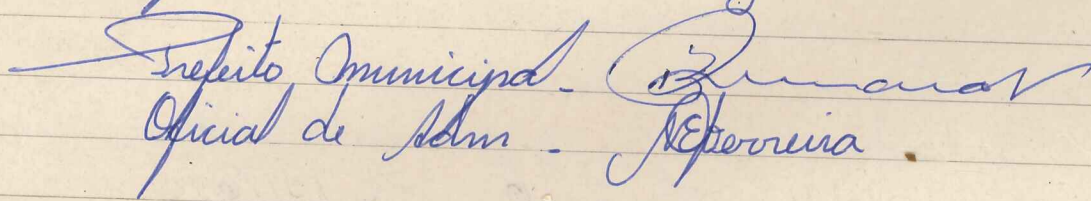 Prefeito Municipal -
Oficial de Adm - Ferreira.